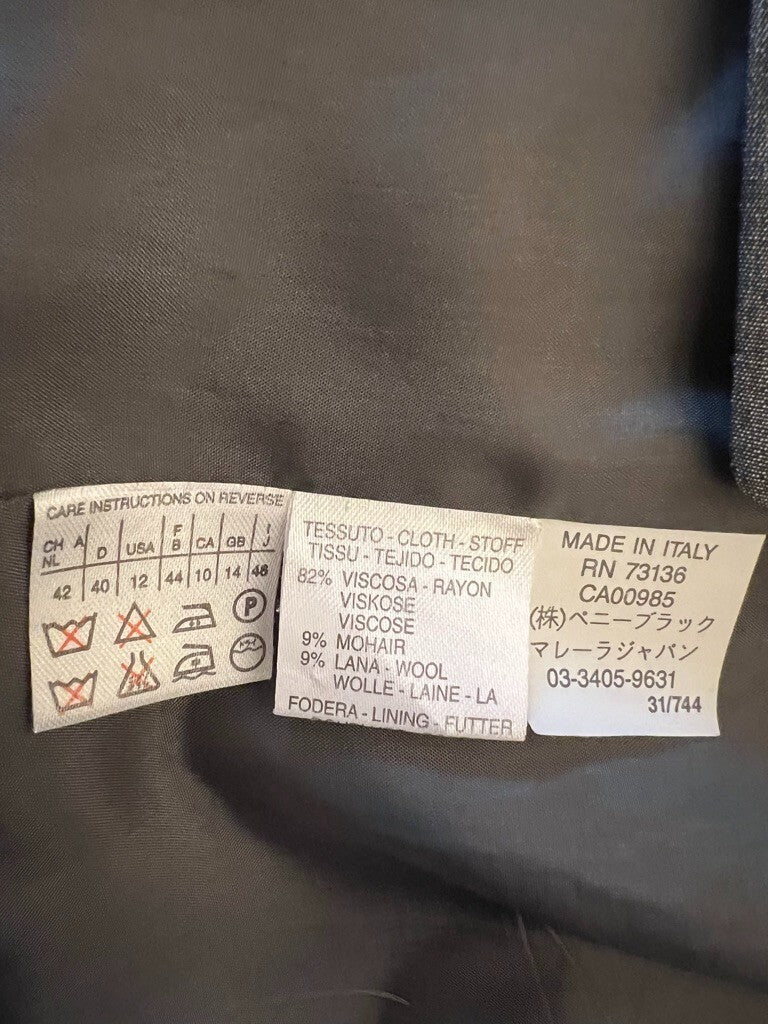 CARE INSTRUCTIONS ON REVERSE
CH NL A D USA F B CA GB I J
42 40 12 44 10 14 46
P
TESSUTO - CLOTH - STOFF
TISSU - TEJIDO - TECIDO
82% VISCOSA - RAYON
VISKOSE
VISCOSE
9% MOHAIR
9% LANA - WOOL
WOLLE - LAINE - LA
FODERA - LINING - FUTTER
MADE IN ITALY
RN 73136
CA00985
(株)ペニーブラック
マレーラジャパン
03-3405-9631
31/744